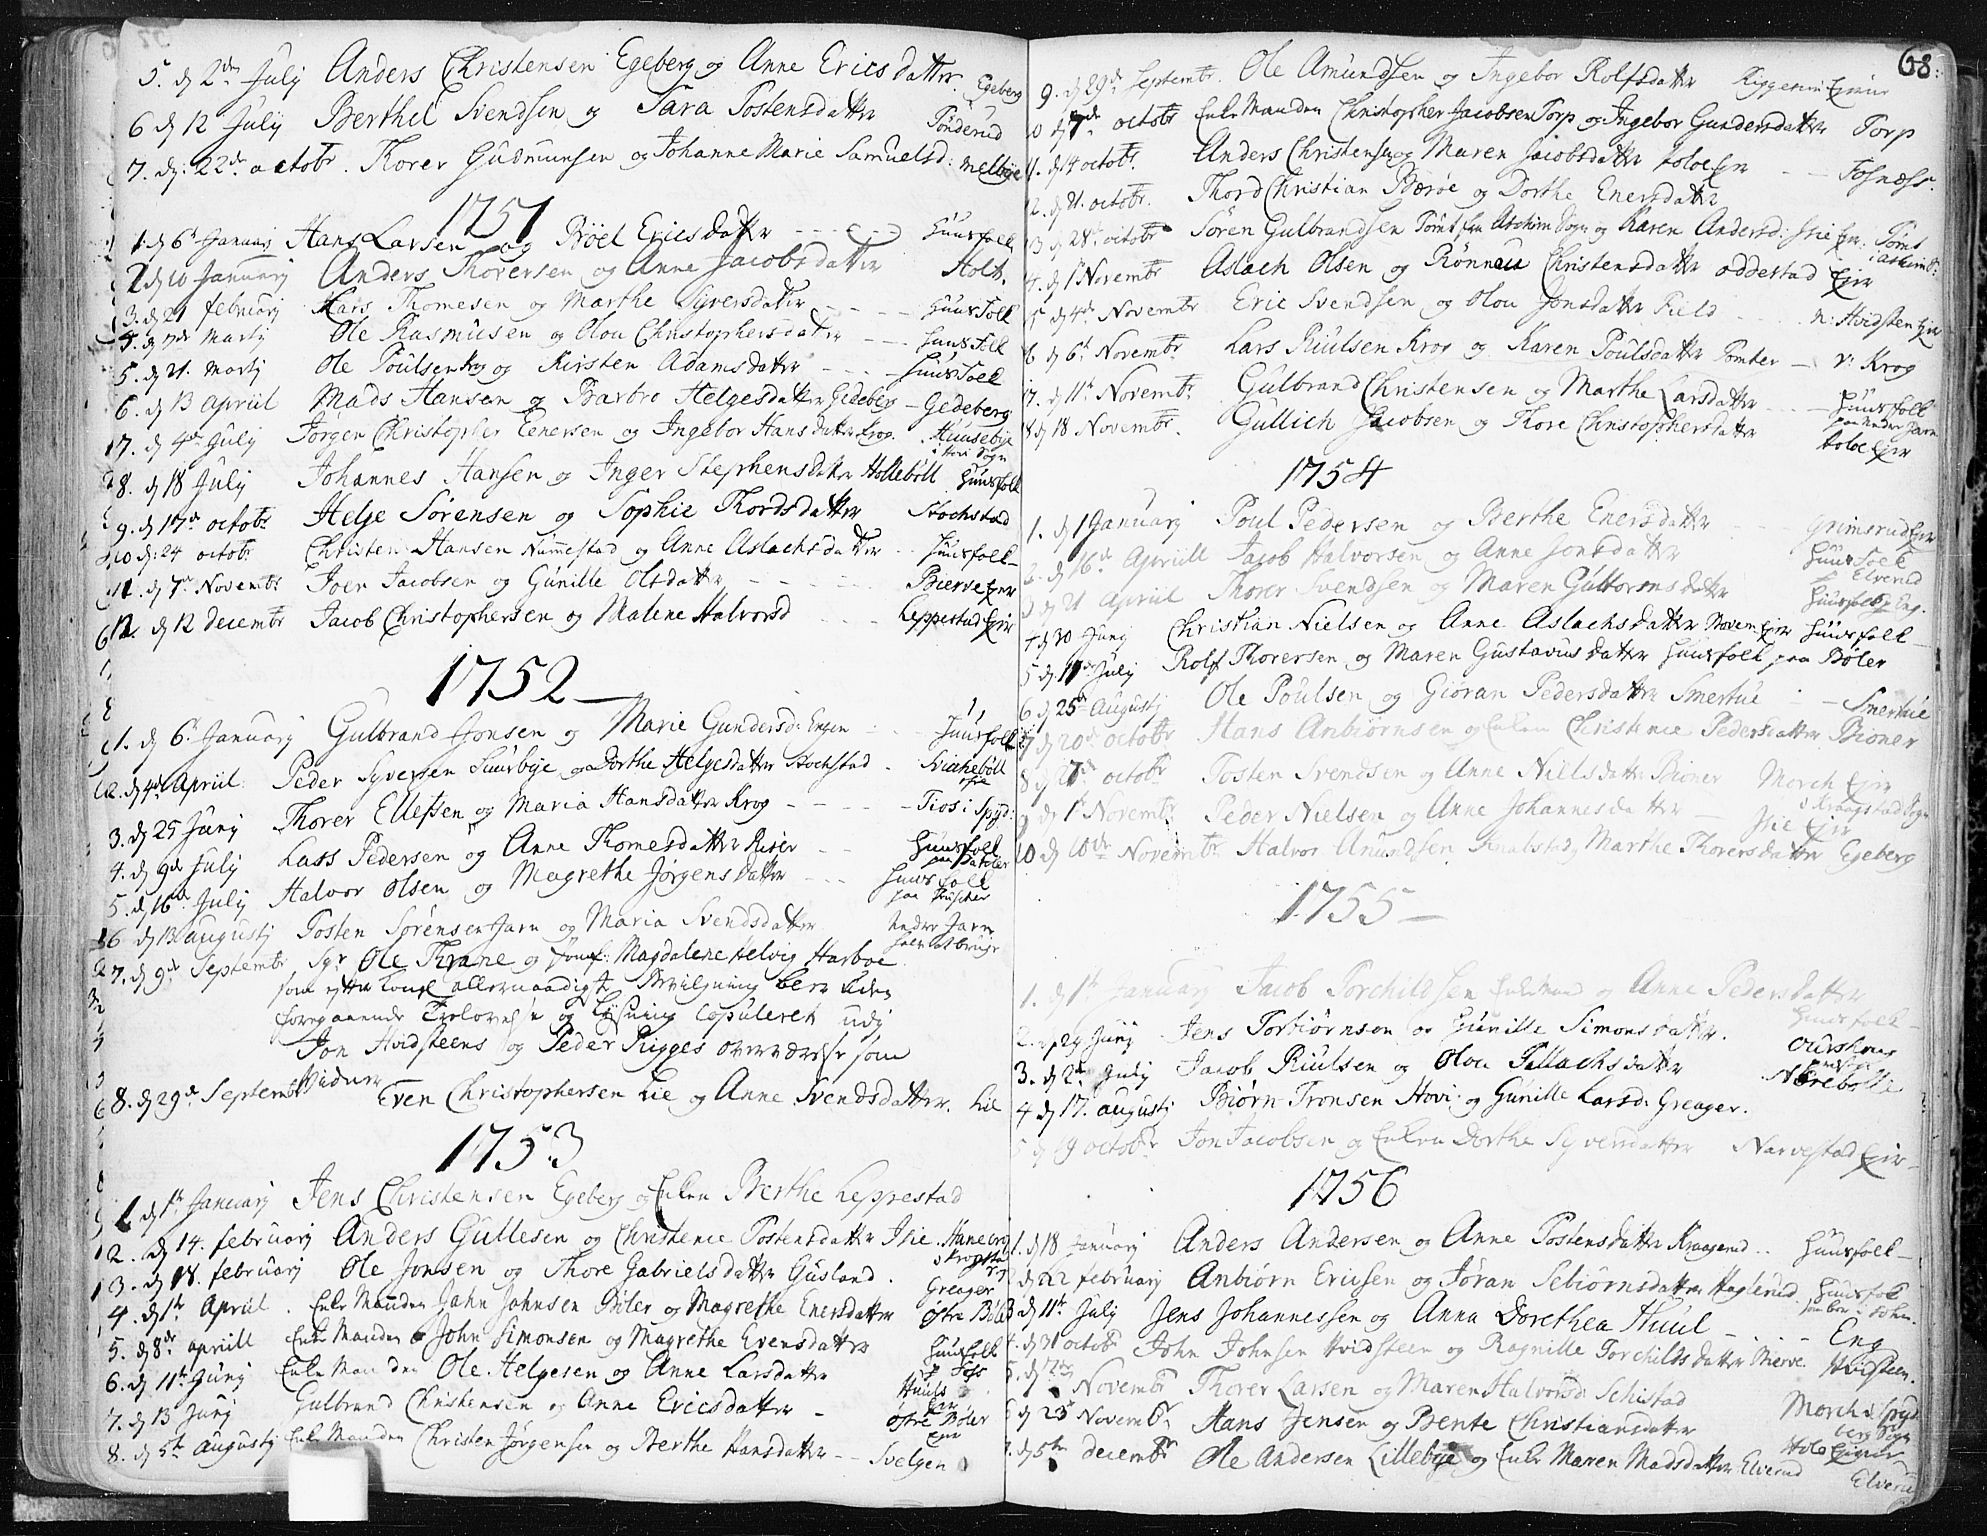 5. dȝ 2de July Anders Christensen Egeberg og Anne Ericsdatter. Egeberg
6 dȝ 12 July Berthel Svendsen og Sara Tostensdatter Tonderud
7. dȝ: 22de octobr. Thorer Gudmunsen og Johanne Marie Samuelsd: Melbye
1751
1. dȝ 6t January Hans Larsen og Röel Ericsdatter Huusfolk
2 dȝ 10 January Anders Thorersen og Anne Jacobsdatter Holt.
3. dȝ 21 february Lars Thomesen og Marthe Syversdatter Huusfolk
4. dȝ 7de Martij Ole Rasmussen og Olou Christophersdatter Huusfolk
5. dȝ 21. Martij Ole Poulsen og Kirsten Adamsdatter Huusfolk
6. dȝ 13 apriil Mads Hansen og Barbro Helgesdatter Gedeberg - Gedeberg
7. dȝ 4de July Jørgen Christopher Enersen og Ingebor Hansdatter Krog. Huusebye
i Hovi Sogn
8. dȝ 18 July Johannes Hansen og Inger Stephensdatter Hollebøll Huusfolk
9. dȝ 17de octobr Helge Sörensen og Sophie Thordsdatter Stochstad
10 dȝ: 24 octobr Christen Hansen Nummestad og Anne Aslachsdatter Huusfolk
11. dȝ 7de Novembr Joen Jacobsen og Gunille Olsdatter Bierve Eyer
12. dȝ 12 decembr Jacob Christophersen og Malene Halvorsd Leppestad Eyer
1752
1. dȝ 6t January Gulbrand Jonsen og Marie Gundersd: Engen Huusfolk
2. dȝ 4de Apriil Peder Syversen Suurbye og Dorthe Helgesdatter Stochstad Svichebøll
3. dȝ 25 Junij Thorer Ellefsen og Maria Hansdatter Krog - Tios i Spyd:
4. dȝ 9de July Lass Pedersen og Anne Thomesdatter Riiser Huusfolk
5. dȝ 16de July Halvor Olsen og Magrethe Jørgensdatter Huusfolk
6 dȝ 13 augustj Tosten Sørensen Jarn og Maria Svendsdatter Nedre Jarn
7. dȝ 9de Septembr Sgr Ole Thrane og Jomf: Magdalene Helvig Harboe
som efter Kongl allernaadigst Bevilgning blev uden
foregaaende Trolovelse og Lysning Copuleret udj
Jon Hvidsteens og Peder Rigges overværelse som
Vidner
8. dȝ 29de Septembr Even Christophersen Lie og Anne Svendsdatter. Lie
1753
1. dȝ 1te January Jens Christensen Egeberg og Enken Berthe Leppestad
2. dȝ 14. february Anders Gullesen og Christence Tostensdatter Ihie.
3. dȝ 18. february Ole Jonsen og Thore Gabrielsdatter Gusland. Greager
4. dȝ 1te Apriil. Enke Manden Jahn Johnsen Bøler og Magrethe Enersdatter Østre Bøler
5. dȝ 8de apriill Enke Manden John Simonsen og Magrethe Evensdatter Huusfolk
6. dȝ 11te Junij Enke Manden Ole Helgesen og Anne Larsdatter Huuls
Eyer
7. dȝ 13 Junij Gulbrand Christensen og Anne Ericsdatter - Østre Bøler
Eyer
8. dȝ 5te augustj Enke Manden Christen Jørgensen og Berthe Hansdatter - Svelgen
68:
9. dȝ 29de Septembr. Ole Amundsen og Ingebor Rolfsdatter
10 dȝ 7de octobr Enke Manden Christopher Jacobsen Torp og Ingebor Gundersdatter Torp
11. dȝ 14 octobr. Anders Christensen og Maren Jacobsdatter
12. dȝ 21. octobr. Thord Christian Bærøe og Dorthe Enersdatter
13 dȝ 28de octobr Søren Gulbrandsen Tomt fra Aschim Sogn og Karen Andersd: Ihie Eyer. Tomt
i Aschim S:
14. dȝ 1te Novembr Aslach Olsen og Rønnau Christensdatter oddestad Eyer
15 dȝ 4de Novembr Eric Svendsen og Olou Jonsdatter Field n: Hvidsten Eyer
16 dȝ 6te Novembr Lars Riulsen Kros og Karen Poulsdatter Tomter - v: Krog
17. dȝ 11te Novembr Gulbrand Christensen og Marthe Larsdatter Huusfolk
paa Nedre Jarn
18 dȝ 18 Novembr. Gullich Jacobsen og Thore Christophersdatter Holoe Eyer
1754
1. dȝ 1 January Poul Pedersen og Berthe Enersdatter Grimsrud Eyer
2. dȝ 16de Apriill Jacob Halvorsen og Anne Jonsdatter Huusfolk
Elverud
3 dȝ 21 Apriil Thorer Svendsen og Maren Guttormsdatter Huusfolk Eng.
4 dȝ 30 Junij Christian Nielsen og Anne Aslachsdatter Eyer Huusfolk
5 dȝ 11te July Rolf Thorersen og Maren Gustavusdatter Huusfolk paa Bøler
6 dȝ 25de Augustj Ole Poulsen og Giøran Pedersdatter Smertue - Smertue
7 dȝ 20de octobr Hans Anbiørnsen og Enken Christence Pedersdatter Bioner
8 dȝ 27de octobr Tosten Svendsen og Anne Nielsdatter Bioner Morch Eyer
i Kraagstad Sogn
9 dȝ 1te Novembr Peder Nielsen og Anne Johannesdatter Ihie Eyer
10 dȝ 10de Novembr Halvor Amundsen Knalstad og Marthe Thorersdatter Egeberg
1755
1. dȝ 1te January Jacob Torchildsen Enkemand og Anne Pedersdatter
Huusfolk
2. dȝ 29 Junij Jens Torbiørnsen og Gunille Simonsdatter. Ourshoug
3. dȝ 2de July Jacob Riulsen og Olou Tallachsdatter Nørebølle
4 dȝ 17. augustj Biørn Tronsen Hovi: og Gunille Larsd: Greager.
5 dȝ 19 octobr Jon Jacobsen og Enken Dorthe Syversdatter Narvestad Eyer
1756
1. dȝ 18 January Anders Andersen og Anne Tostensdatter Kragerud.. Huusfolk
2. dȝ 22 february Anbiørn Ericsen og Jøran Sebiørnsdatter Haglerud Huusfolk
3 dȝ 11te July Jens Johannessen og Anna Dorethea Huul - Eng
4. dȝ 31 octobr John Johnsen Hvidsteen og Ragnille Torchildsdatter Bierve. Hvidsteen.
5. dȝ 7de Novembr Thorer Larsen og Maren Halvorsd: Schistad Morch i Spyd
berg Sogn
6 dȝ 23de Novembr. Hans Jensen og Bente Christiansdatter Holoe Eyer
7. dȝ 5te decembr Ole Andersen Lillebye og Enke Maren Madsdatter Elverud Elverud